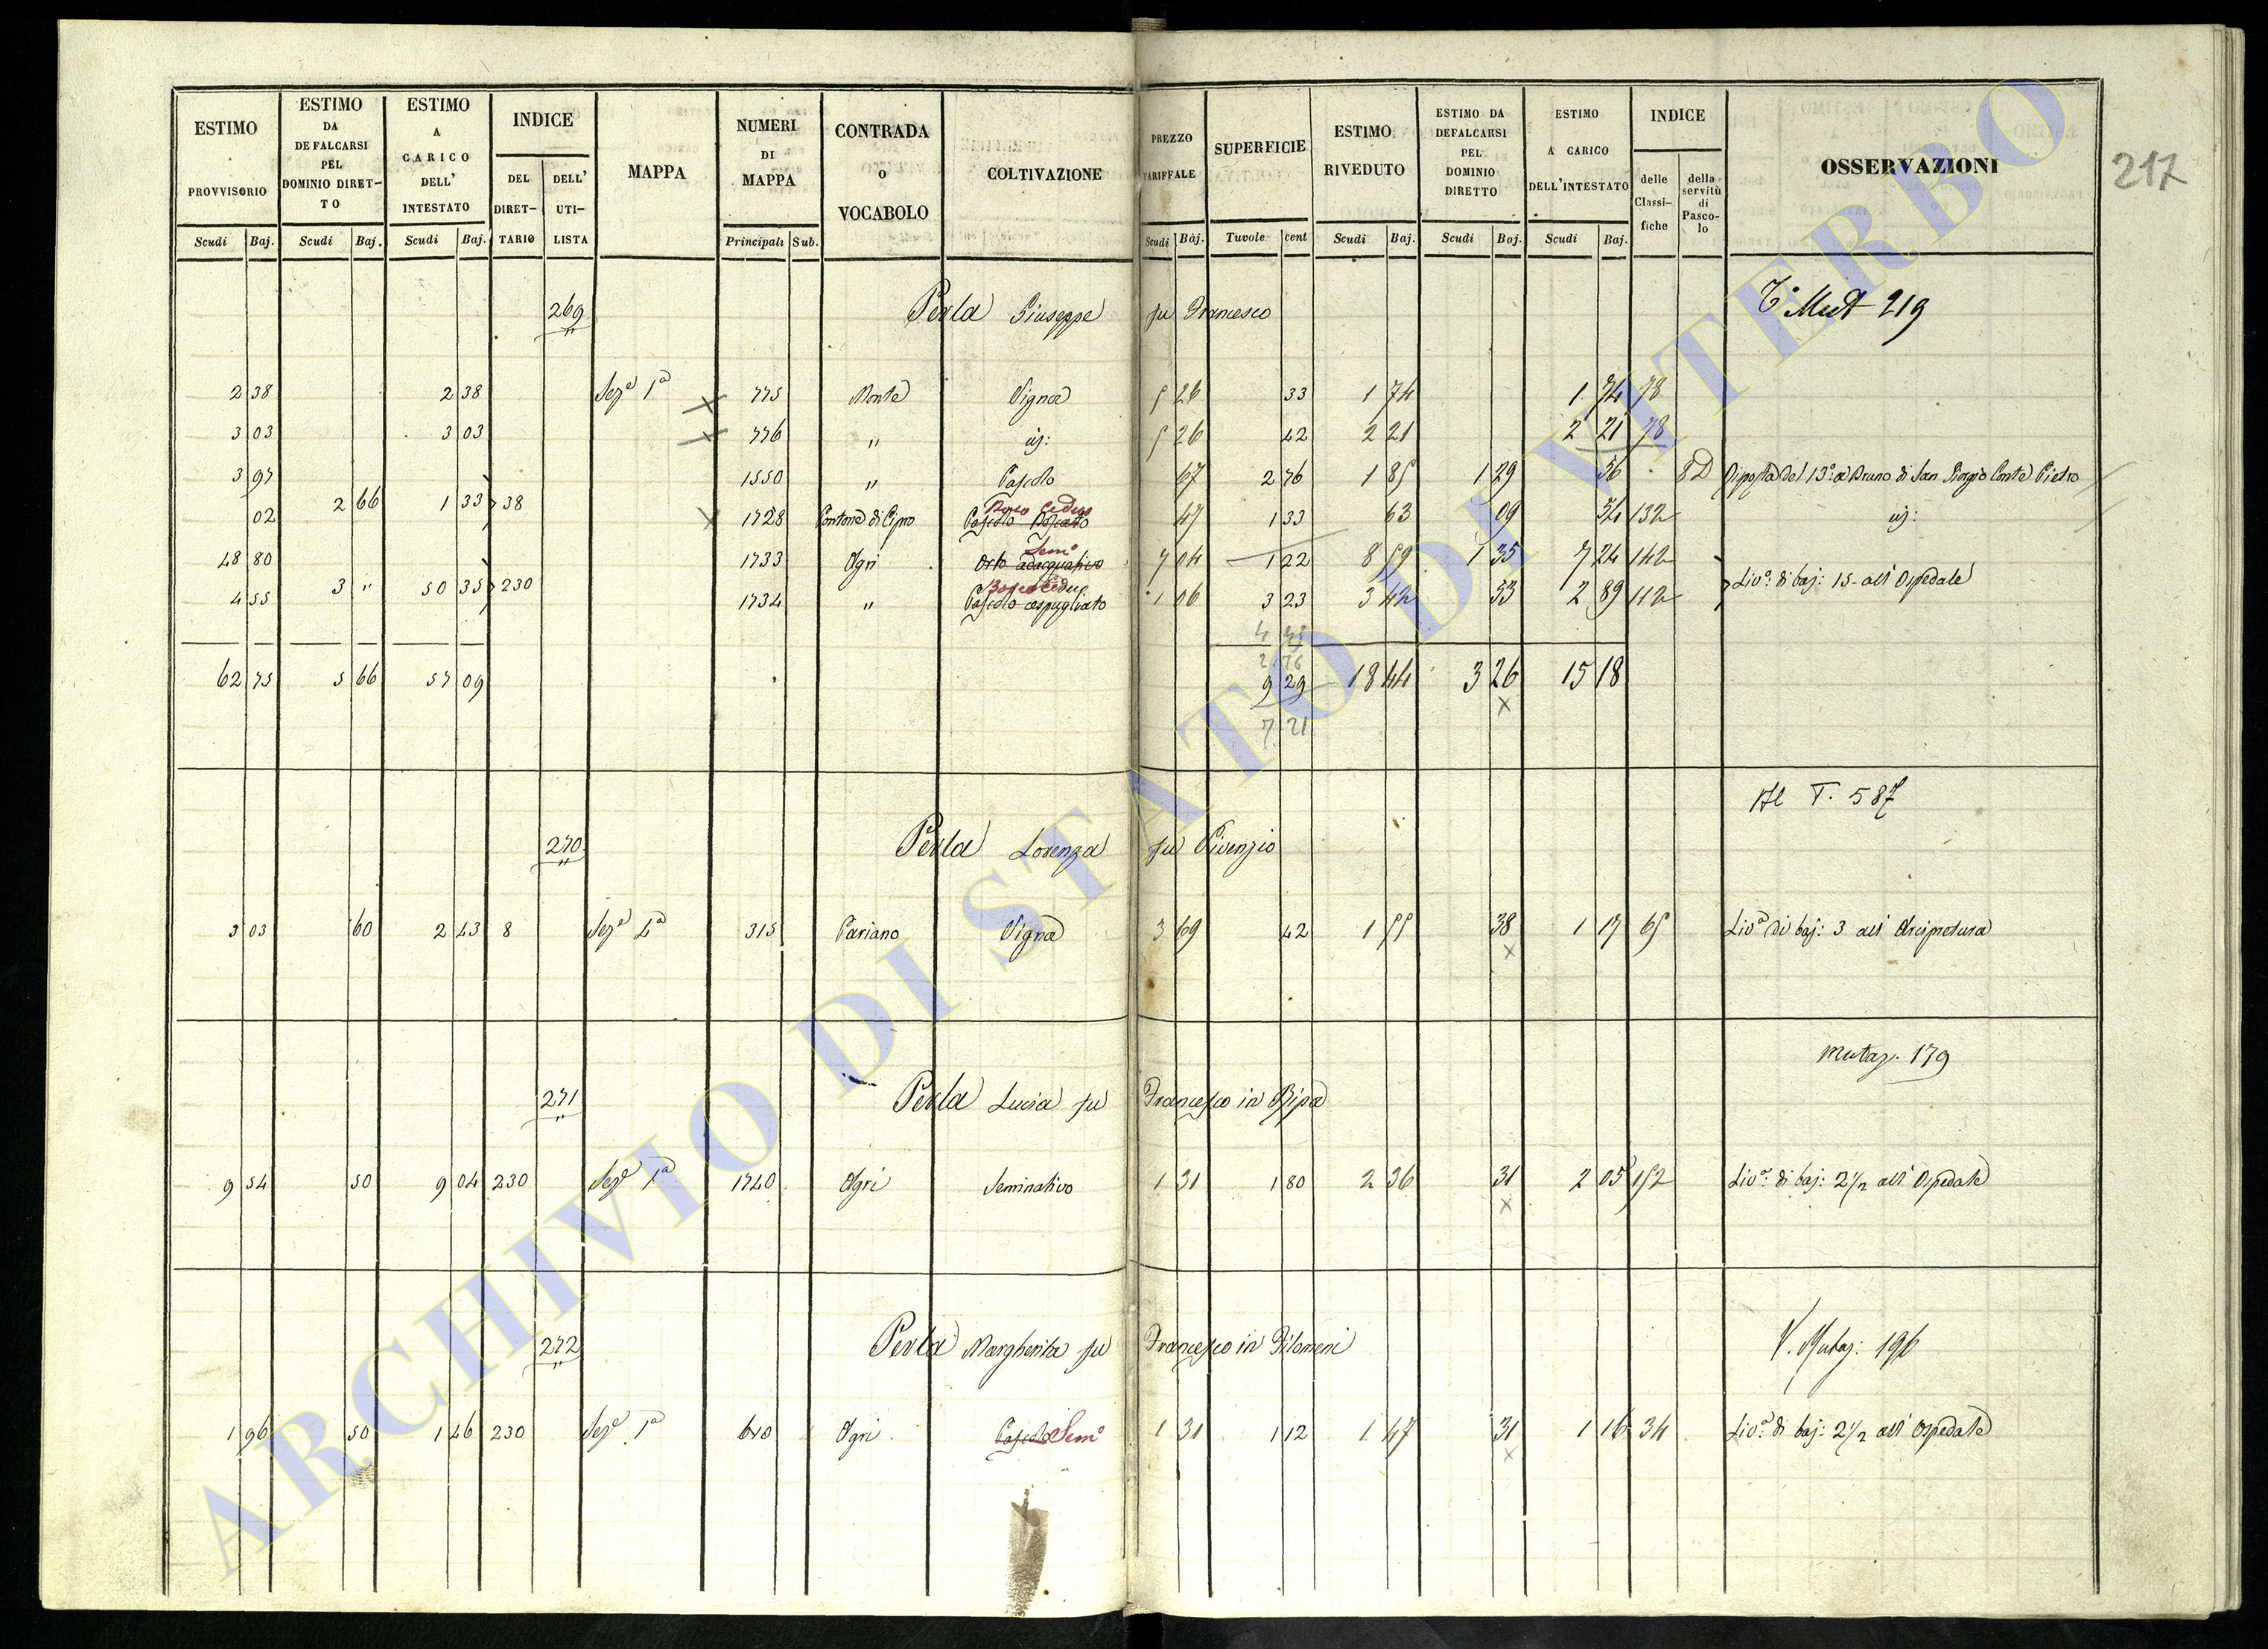 217
ESTIMO PROVVISORIO ESTIMO DA DEFALCARSI PEL DOMINIO DIRET-TO ESTIMO A CARICO DELL' INTESTATO INDICE DEL DIRET-TARIO DELL' UTI-LISTA MAPPA NUMERI DI MAPPA CONTRADA O VOCABOLO COLTIVAZIONE PREZZO TARIFFALE SUPERFICIE ESTIMO RIVEDUTO ESTIMO DA DEFALCARSI PEL DOMINIO DIRETTO ESTIMO A CARICO DELL'INTESTATO INDICE delle Classi-fiche della servitù di Pasco-lo OSSERVAZIONI
Scudi Baj. Scudi Baj. Scudi Baj. Principali Sub. Scudi Baj. Tavole cent Scudi Baj. Scudi Baj. Scudi Baj.
269 Perla Giuseppe fu Francesco 219
2 38 2 38 Seze 1a 775 Monte Vigna 5 26 33 1 74 1 74 78
3 03 3 03 776 " id: 5 26 42 2 21 2 21 78
3 97 1550 " Pascolo 67 2 76 1 85 1 29 56 8D Risposta del 13o a Bruno di San Giorgio Conte Pietro
2 66 1 33 38
02 1728 Fontana di Cipro Pascolo Boscato Bosco Ceduo 47 1 33 63 09 54 132 id:
48 80 1733 Agri Orto adacquativo Semo 7 04 1 22 8 59 1 35 7 24 142
3 " 50 35 230 Livo: di baj: 15 all' Ospedale
4 55 1734 " Pascolo cespugliato Bosco Ceduo 1 06 3 23 3 42 53 2 89 112
2 76
62 75 5 66 57 09 9 29 18 44 3 26 15 18
7 21
T. 587
270 Perla Lorenza fu Vivenzio
3 03 60 2 43 8 Sezе 4a 315 Pariano Vigna 3 69 42 1 55 38 1 17 65 Liva di baj: 3 all' Arcipretura
Mutaz. 179
271 Perla Lucia fu Francesco in Ripa
9 54 50 9 04 230 Sezе 1a 1740 Agri Seminativo 1 31 1 80 2 36 31 2 05 152 Liva: di baj: 2 1/2 all' Ospedale
272 Perla Margherita fu Francesco in Filomeni V. Mutaz: 196
1 96 50 1 46 230 Sezе 1a 610 Agri Pascolo Semo 1 31 1 12 1 47 31 1 16 34 Liva: di baj: 2 1/2 all' Ospedale
ARCHIVIO DI STATO DI VITERBO